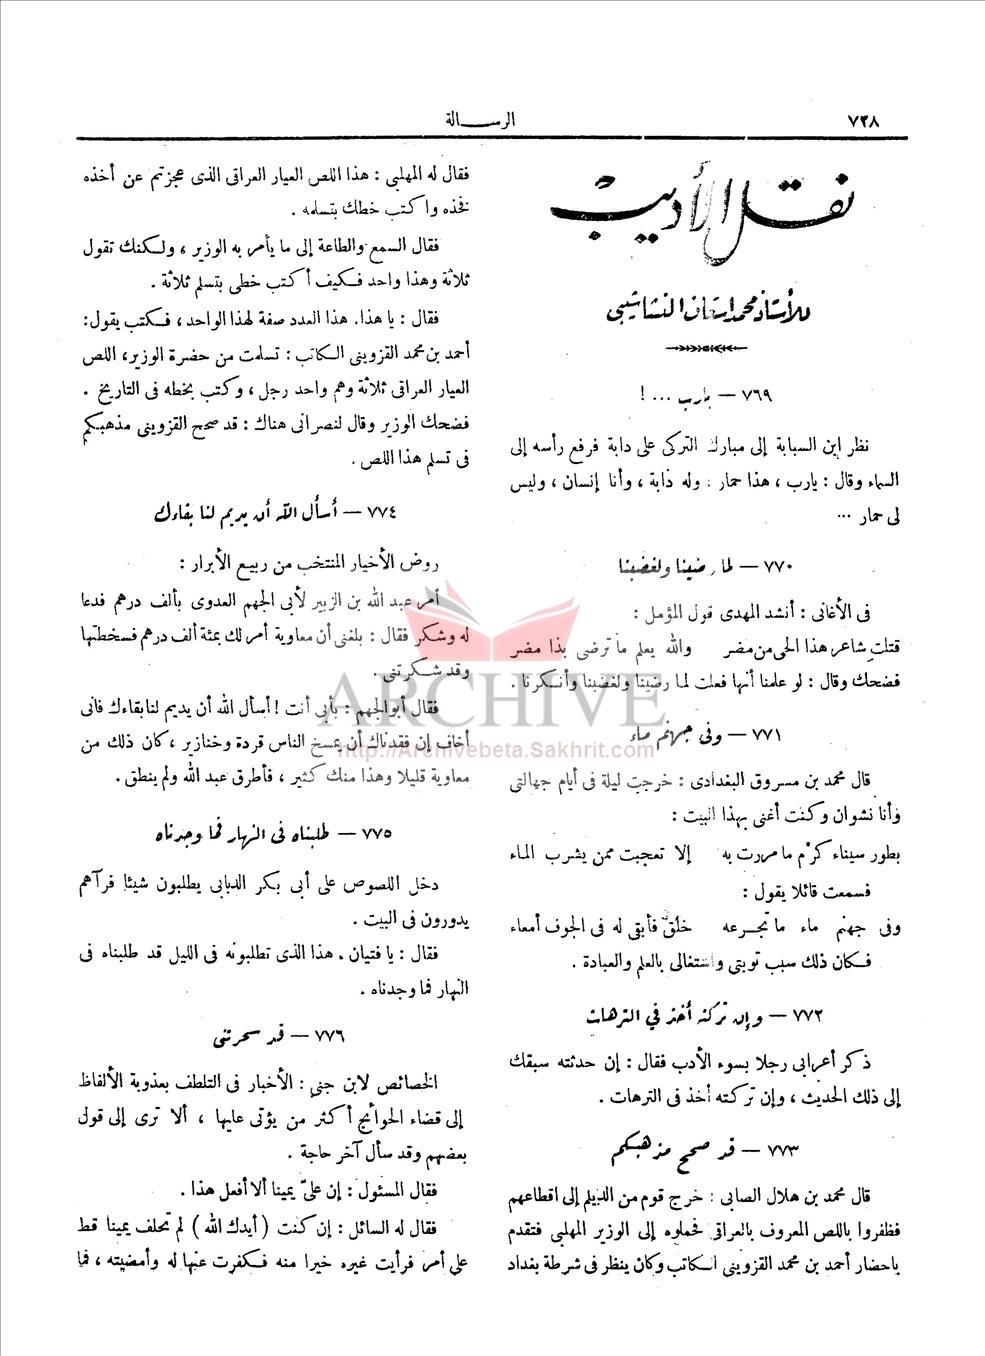 ٧٢٨
الرسالة
نقل الأديب
للأستاذ محمد إسعاف النشاشيبي
٧٦٩ — يارب ... !
نظر ابن السبابة إلى مبارك التركي على دابة فرفع رأسه إلى
السماء وقال : يارب ، هذا حمار ، وله دابة ، وأنا إنسان ، وليس
لى حمار ...
٧٧٠ — لما رضينا ولغضبنا
فى الأغانى : أنشد المهدى قول المؤمل :
قتلتِ شاعر هذا الحى من مضر والله يعلم ما ترضى بذا مضر
فضحك وقال : لو علمنا أنها فعلت لما رضينا ولغضبنا وأنكرنا .
٧٧١ — وفى جهنم ماء
قال محمد بن مسروق البغدادى : خرجت ليلة فى أيام جهالتى
وأنا نشوان وكنت أغنى بهذا البيت :
بطور سيناء كرْم ما مررت به إلا تعجبت ممن يشرب الماء
فسمعت قائلا يقول :
وفى جهنم ماء ما تجرعه خلق فأبقى له فى الجوف أمعاء
فكان ذلك سبب توبتى واشتغالى بالعلم والعبادة .
٧٧٢ — وإن تركته أخذ في الترهات
ذكر أعرابى رجلا بسوء الأدب فقال : إن حدثته سبقك
إلى ذلك الحديث ، وإن تركته أخذ فى الترهات .
٧٧٣ — قد صحح مذهبكم
قال محمد بن هلال الصابى : خرج قوم من الديلم إلى اقطاعهم
فظفروا باللص المعروف بالعراقى فحملوه إلى الوزير المهلبى فتقدم
باحضار أحمد بن محمد القزوينى الكاتب وكان ينظر فى شرطة بغداد
فقال له المهلبى : هذا اللص العيار العراقى الذى عجزتم عن أخذه
فخذه واكتب خطك بتسلمه .
فقال السمع والطاعة إلى ما يأمر به الوزير ، ولكنك تقول
ثلاثة وهذا واحد فكيف أكتب خطى بتسلم ثلاثة .
فقال : يا هذا. هذا العدد صفة لهذا الواحد ، فكتب يقول:
أحمد بن محمد القزوينى الكاتب : تسلمت من حضرة الوزير، اللص
العيار العراقى ثلاثة وهم واحد رجل ، وكتب بخطه فى التاريخ .
فضحك الوزير وقال لنصرانى هناك : قد صحح القزوينى مذهبكم
فى تسلم هذا اللص .
٧٧٤ — أسأل الله أن يديم لنا بقاءك
روض الأخيار المنتخب من ربيع الأبرار :
أمر عبد الله بن الزبير لأبى الجهم العدوى بألف درهم فدعا
له وشكر فقال : بلغنى أن معاوية أمر لك بمئة ألف درهم فسخطتها
وقد شكرتنى .
فقال أبو الجهم : بأبى أنت ! أسأل الله أن يديم لنا بقاءك فانى
أخاف إن فقدناك أن يمسخ الناس قردة وخنازير ، كان ذلك من
معاوية قليلا وهذا منك كثير ، فأطرق عبد الله ولم ينطق .
٧٧٥ — طلبناه فى النهار فما وجدناه
دخل اللصوص على أبى بكر الدبابى يطلبون شيئا فرآهم
يدورون فى البيت .
فقال : يا فتيان . هذا الذى تطلبونه فى الليل قد طلبناه فى
النهار فما وجدناه .
٧٧٦ — قد سحرتنى
الخصائص لابن جنى : الأخبار فى التلطف بعذوبة الألفاظ
إلى قضاء الحوائج أكثر من يؤتى عليها ، ألا ترى إلى قول
بعضهم وقد سأل آخر حاجة .
فقال المسئول : إن علىّ يمينا ألا أفعل هذا .
فقال له السائل : إن كنت ( أيدك الله ) لم تحلف يمينا قط
على أمر فرأيت غيره خيرا منه فكفرت عنها له وأمضيته ، فما
ARCHIVE
http://Archivebeta.Sakhrit.com